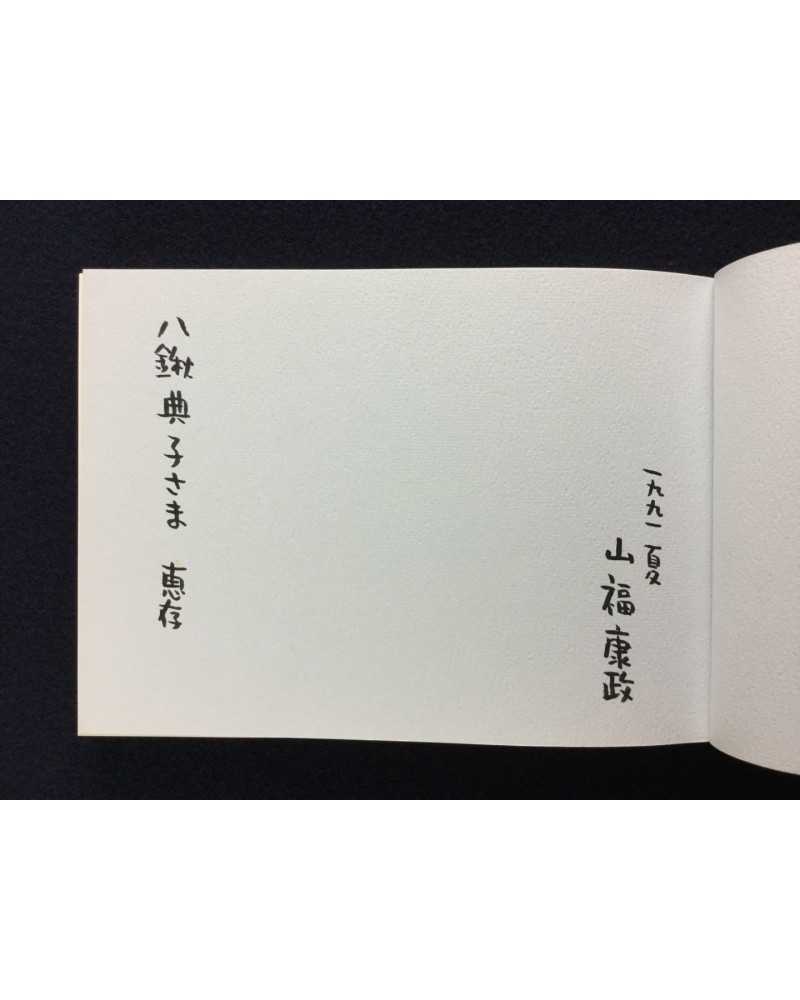 一九九一 夏
山福康政
八鍬典子さま 恵存